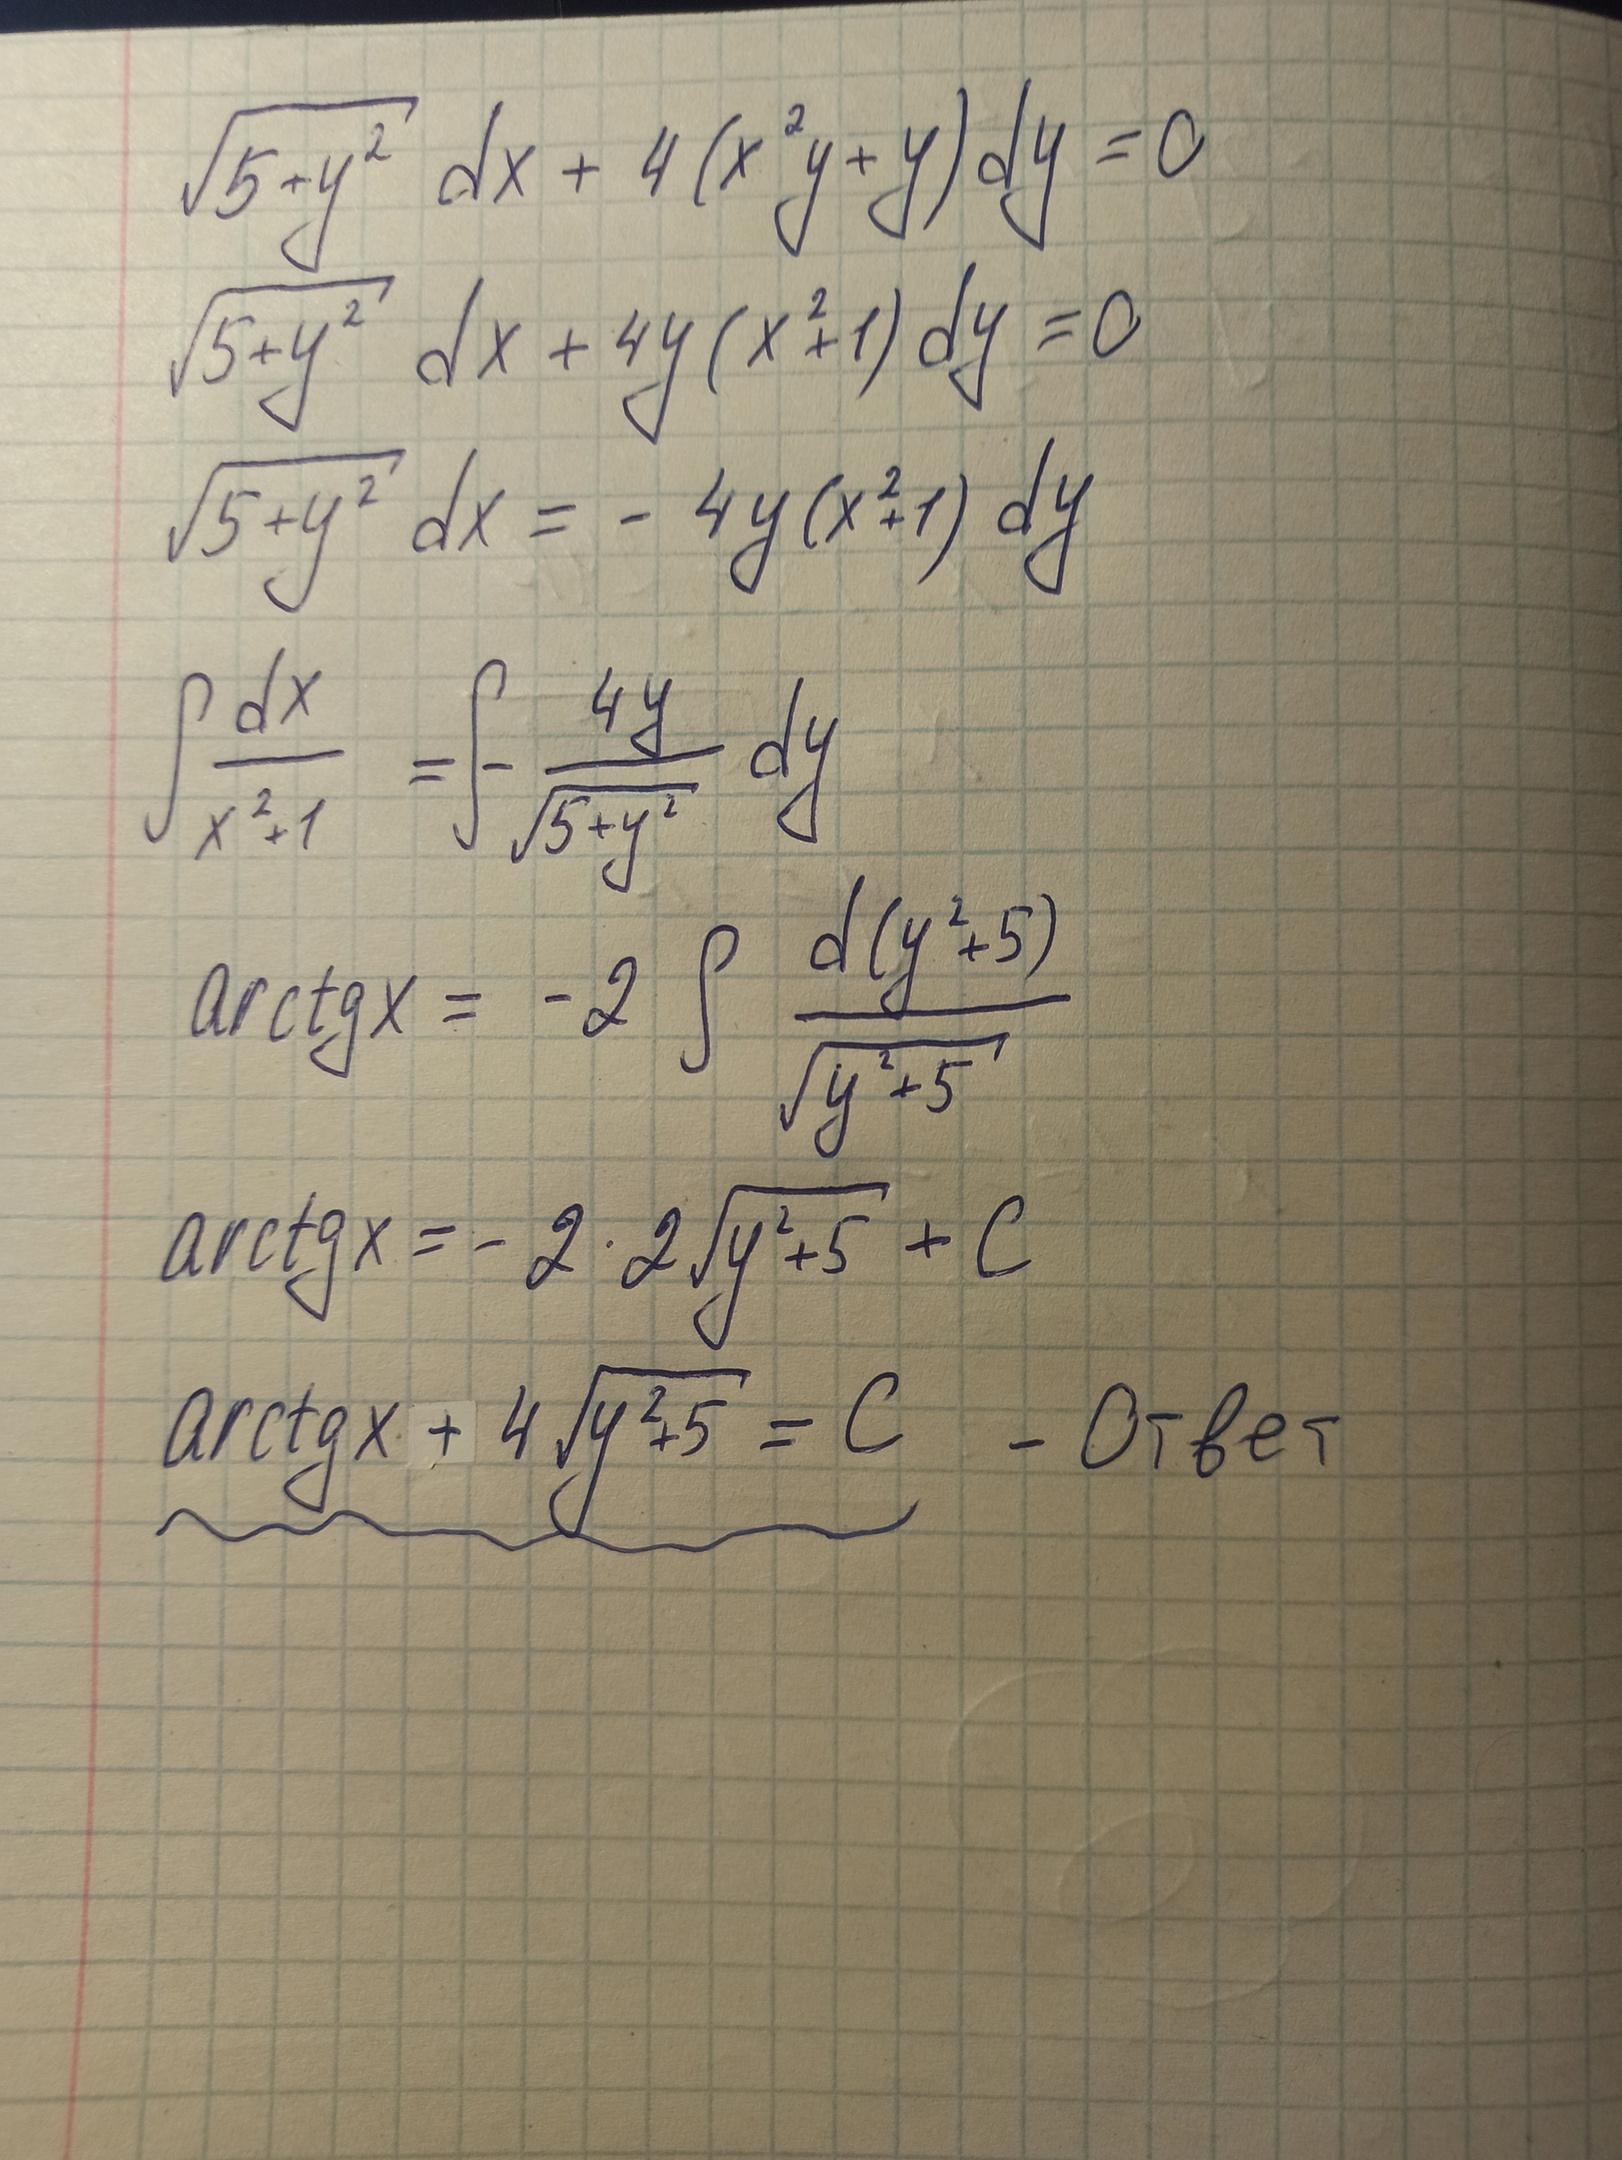 √(5+y²) dx + 4(x²y+y)dy = 0
√(5+y²) dx + 4y(x²+1)dy = 0
√(5+y²) dx = - 4y(x²+1) dy
∫ dx/(x²+1) = ∫ - 4y/√(5+y²) dy
arctgx = -2 ∫ d(y²+5)/√(y²+5)
arctgx = - 2 · 2√(y²+5) + C
arctgx + 4√(y²+5) = C - Ответ